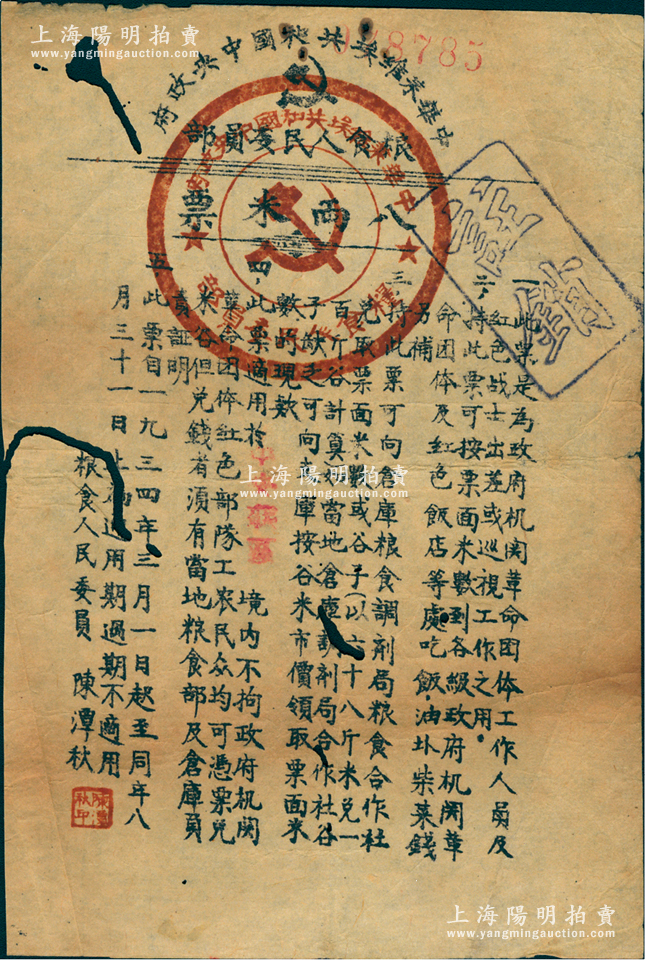 上海陽明拍賣
www.yangmingauction.com
中華蘇維埃共和國中央政府
8785
粮食人民委員部
米票
一此票是為政府机関革命团体工作人員及
紅色战士出差或巡視工作之用。
二，持此票可按票面米數到各級政府机関革
命团体及紅色飯店等處吃飯，油圤柴菜錢
另補
三持此票可向倉庫粮食調剂局粮食合作社
兌取票面米數或谷子(以六十八斤米兌一
百斤谷計算如當地倉庫調剂局合作社谷
子缺乏可向金庫按谷米市價領取票面米
數的現款
四，此票適用於
境内不拘政府机関
革命团体紅色部隊工农民众均可憑票兌
米谷但兌錢者須有當地粮食部及倉庫員
責証明
五此票自一九三四年三月一日起至同年八
月三十一日止為適用期過期不適用
粮食人民委員 陳潭秋
陳潭秋印
上海陽明拍賣
www.yangmingauction.com
上海陽明拍賣
www.yangmingauction.com